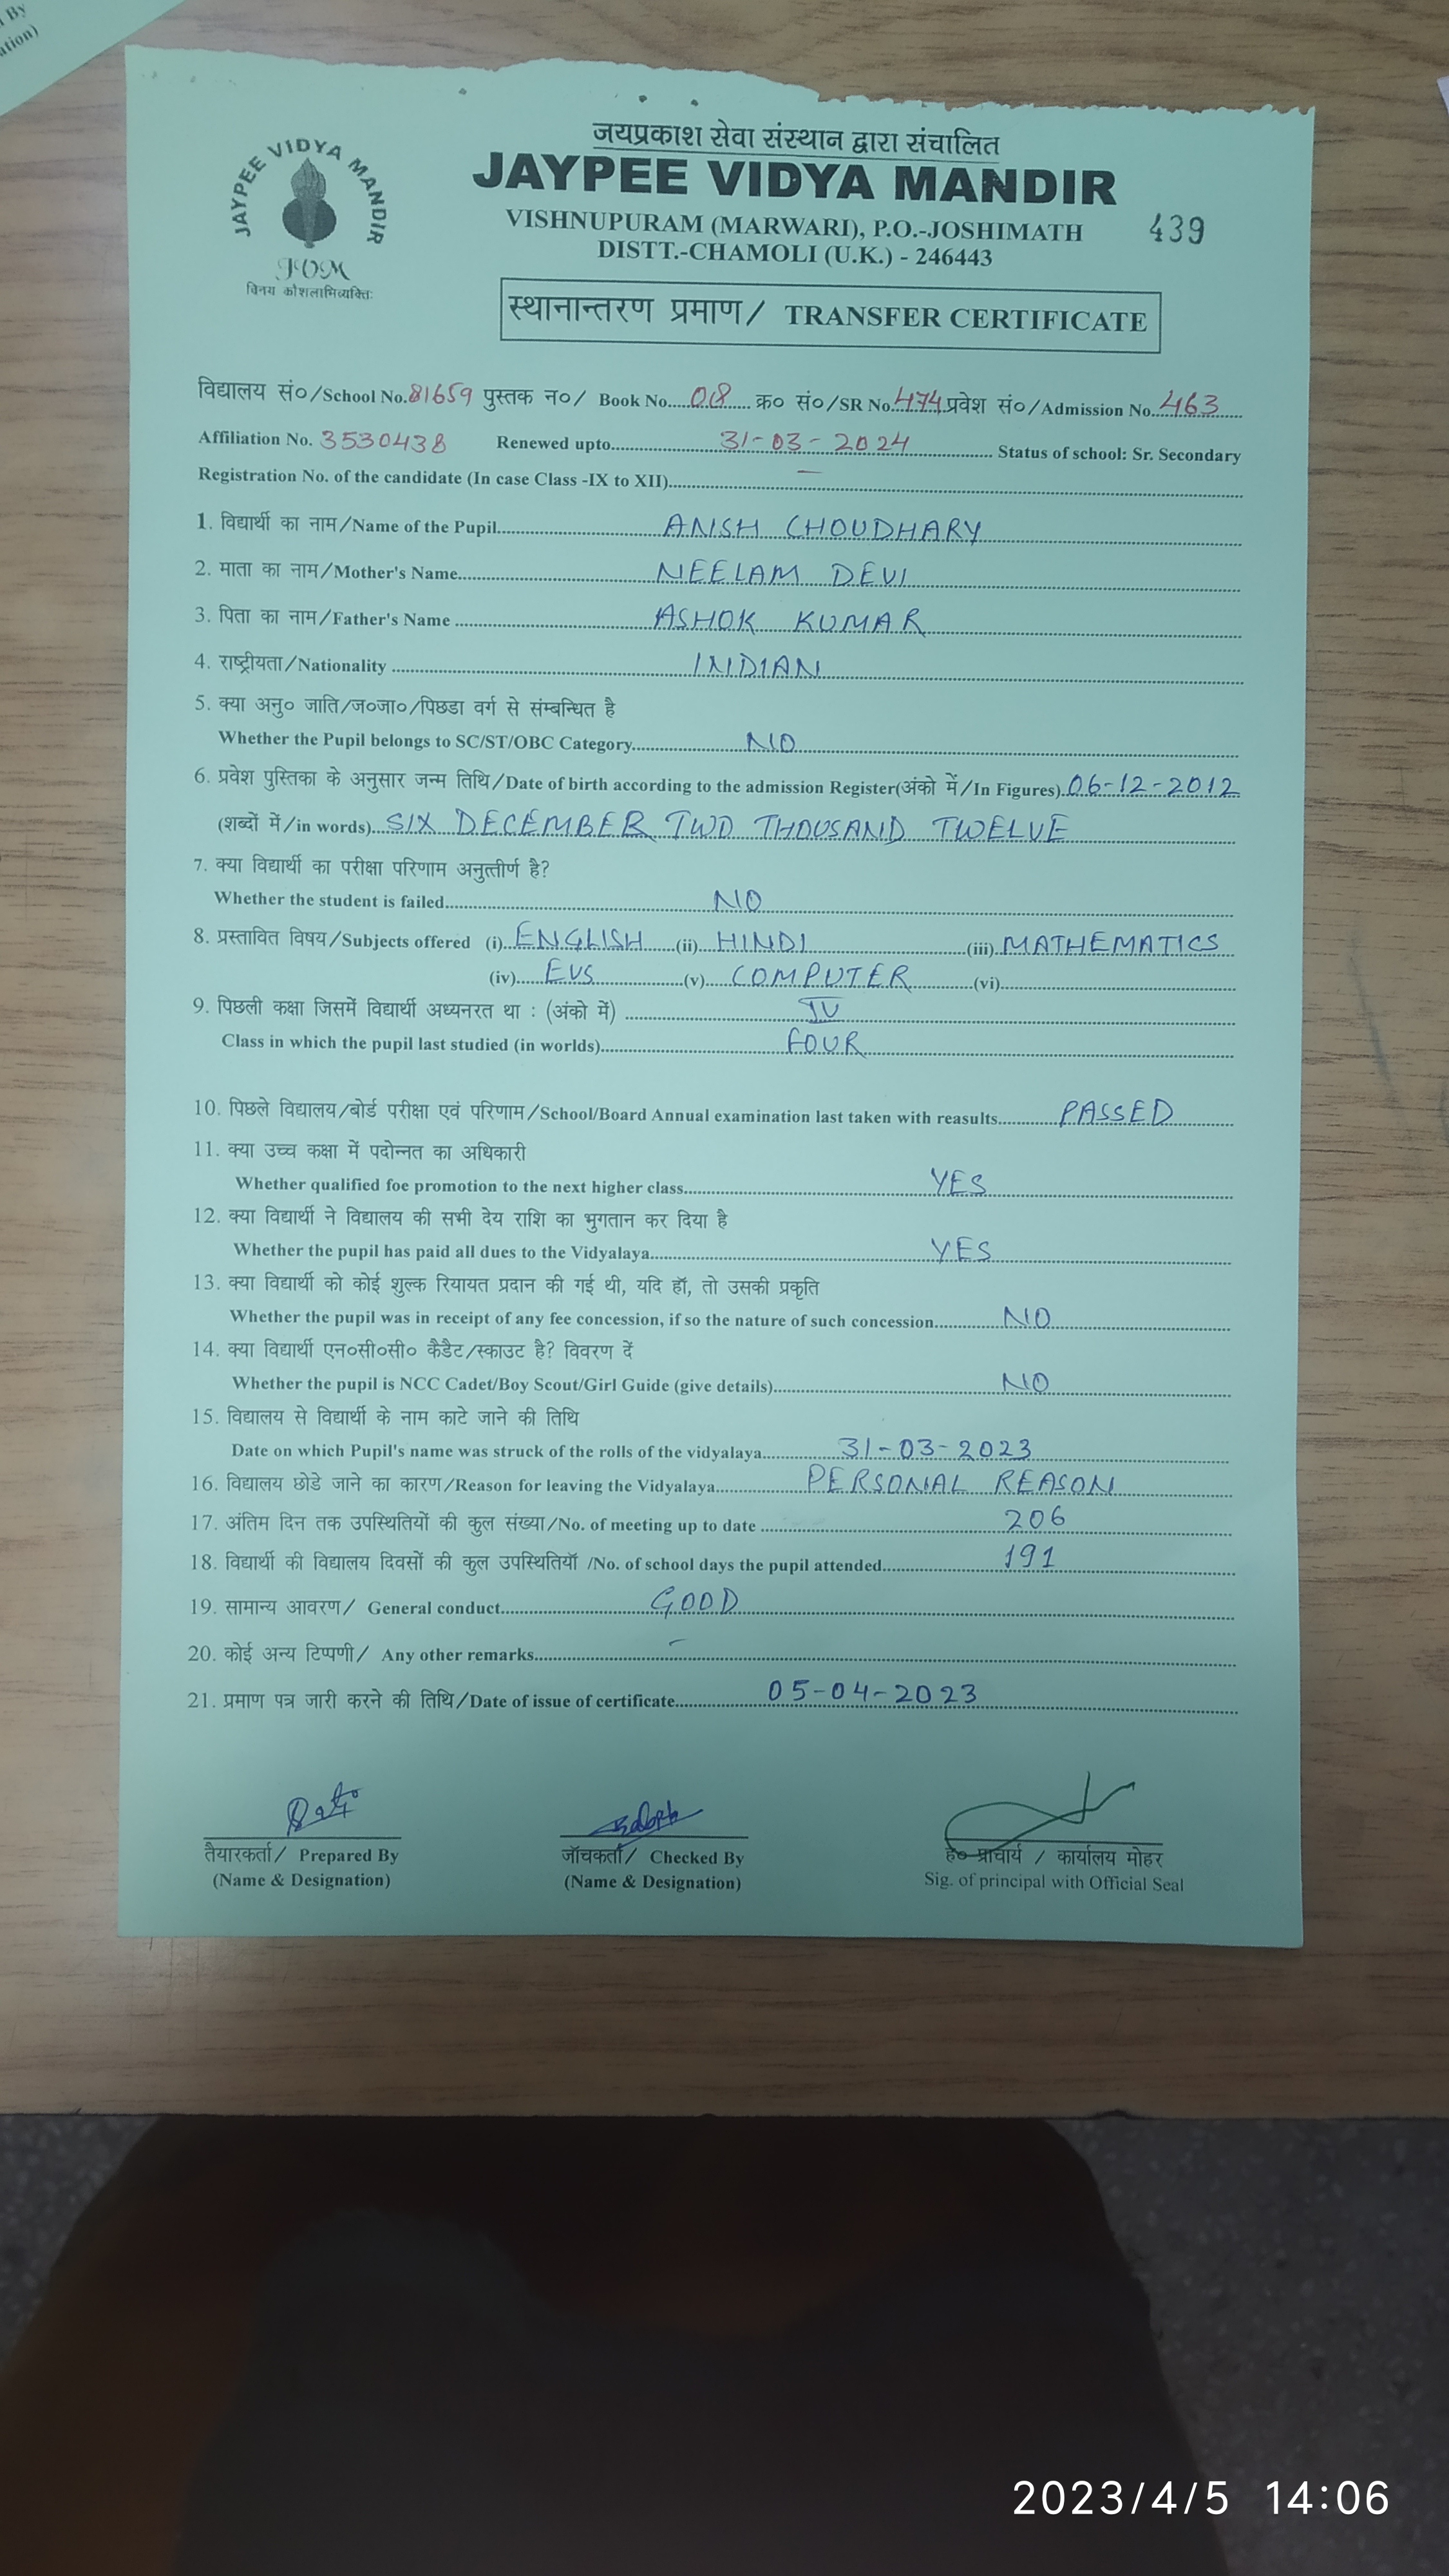 n By
ation)
जयप्रकाश सेवा संस्थान द्वारा संचालित
JAYPEE VIDYA MANDIR
JAYPEE VIDYA MANDIR
VISHNUPURAM (MARWARI), P.O.-JOSHIMATH
439
DISTT.-CHAMOLI (U.K.) - 246443
विनय कौशलाभिव्यक्तिः
स्थानान्तरण प्रमाण/ TRANSFER CERTIFICATE
विद्यालय सं०/School No. 81659 पुस्तक न०/ Book No. 08 क्र० सं०/SR No. 474 प्रवेश सं०/Admission No. 463
Affiliation No. 3530438 Renewed upto 31-03-2024 Status of school: Sr. Secondary
Registration No. of the candidate (In case Class -IX to XII) —
1. विद्यार्थी का नाम/Name of the Pupil ANSH CHOUDHARY
2. माता का नाम/Mother's Name NEELAM DEVI
3. पिता का नाम/Father's Name ASHOK KUMAR
4. राष्ट्रीयता/Nationality INDIAN
5. क्या अनु० जाति/ज०जा०/पिछडा वर्ग से संम्बन्धित है
Whether the Pupil belongs to SC/ST/OBC Category NO
6. प्रवेश पुस्तिका के अनुसार जन्म तिथि/Date of birth according to the admission Register(अंको में/In Figures) 06-12-2012
(शब्दों में/in words) SIX DECEMBER TWO THOUSAND TWELVE
7. क्या विद्यार्थी का परीक्षा परिणाम अनुत्तीर्ण है?
Whether the student is failed NO
8. प्रस्तावित विषय/Subjects offered (i) ENGLISH (ii) HINDI (iii) MATHEMATICS
(iv) EVS (v) COMPUTER (vi)
9. पिछली कक्षा जिसमें विद्यार्थी अध्यनरत था : (अंको में) IV
Class in which the pupil last studied (in worlds) FOUR
10. पिछले विद्यालय/बोर्ड परीक्षा एवं परिणाम/School/Board Annual examination last taken with reasults PASSED
11. क्या उच्च कक्षा में पदोन्नत का अधिकारी
Whether qualified foe promotion to the next higher class YES
12. क्या विद्यार्थी ने विद्यालय की सभी देय राशि का भुगतान कर दिया है
Whether the pupil has paid all dues to the Vidyalaya YES
13. क्या विद्यार्थी को कोई शुल्क रियायत प्रदान की गई थी, यदि हॉ, तो उसकी प्रकृति
Whether the pupil was in receipt of any fee concession, if so the nature of such concession NO
14. क्या विद्यार्थी एन०सी०सी० कैडैट/स्काउट है? विवरण दें
Whether the pupil is NCC Cadet/Boy Scout/Girl Guide (give details) NO
15. विद्यालय से विद्यार्थी के नाम काटे जाने की तिथि
Date on which Pupil's name was struck of the rolls of the vidyalaya 31-03-2023
16. विद्यालय छोडे जाने का कारण/Reason for leaving the Vidyalaya PERSONAL REASON
17. अंतिम दिन तक उपस्थितियों की कुल संख्या/No. of meeting up to date 206
18. विद्यार्थी की विद्यालय दिवसों की कुल उपस्थितियॉ /No. of school days the pupil attended 191
19. सामान्य आवरण/ General conduct GOOD
20. कोई अन्य टिप्पणी/ Any other remarks -
21. प्रमाण पत्र जारी करने की तिथि/Date of issue of certificate 05-04-2023
तैयारकर्ता/ Prepared By जॉचकर्ता/ Checked By ह० प्राचार्य / कार्यालय मोहर
(Name & Designation) (Name & Designation) Sig. of principal with Official Seal
2023/4/5 14:06